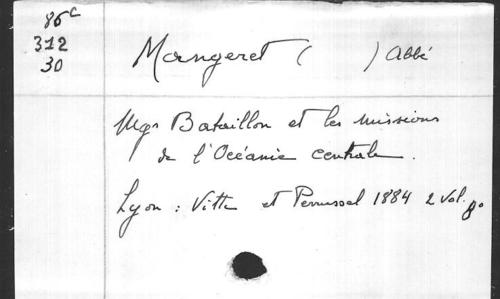 86c
312
30
Mangeret ( ) Abbé
Mgr Bataillon et les missions
de l'Océanie centrale.
Lyon : Vitte et Perrussel 1884 2 vol. 8°